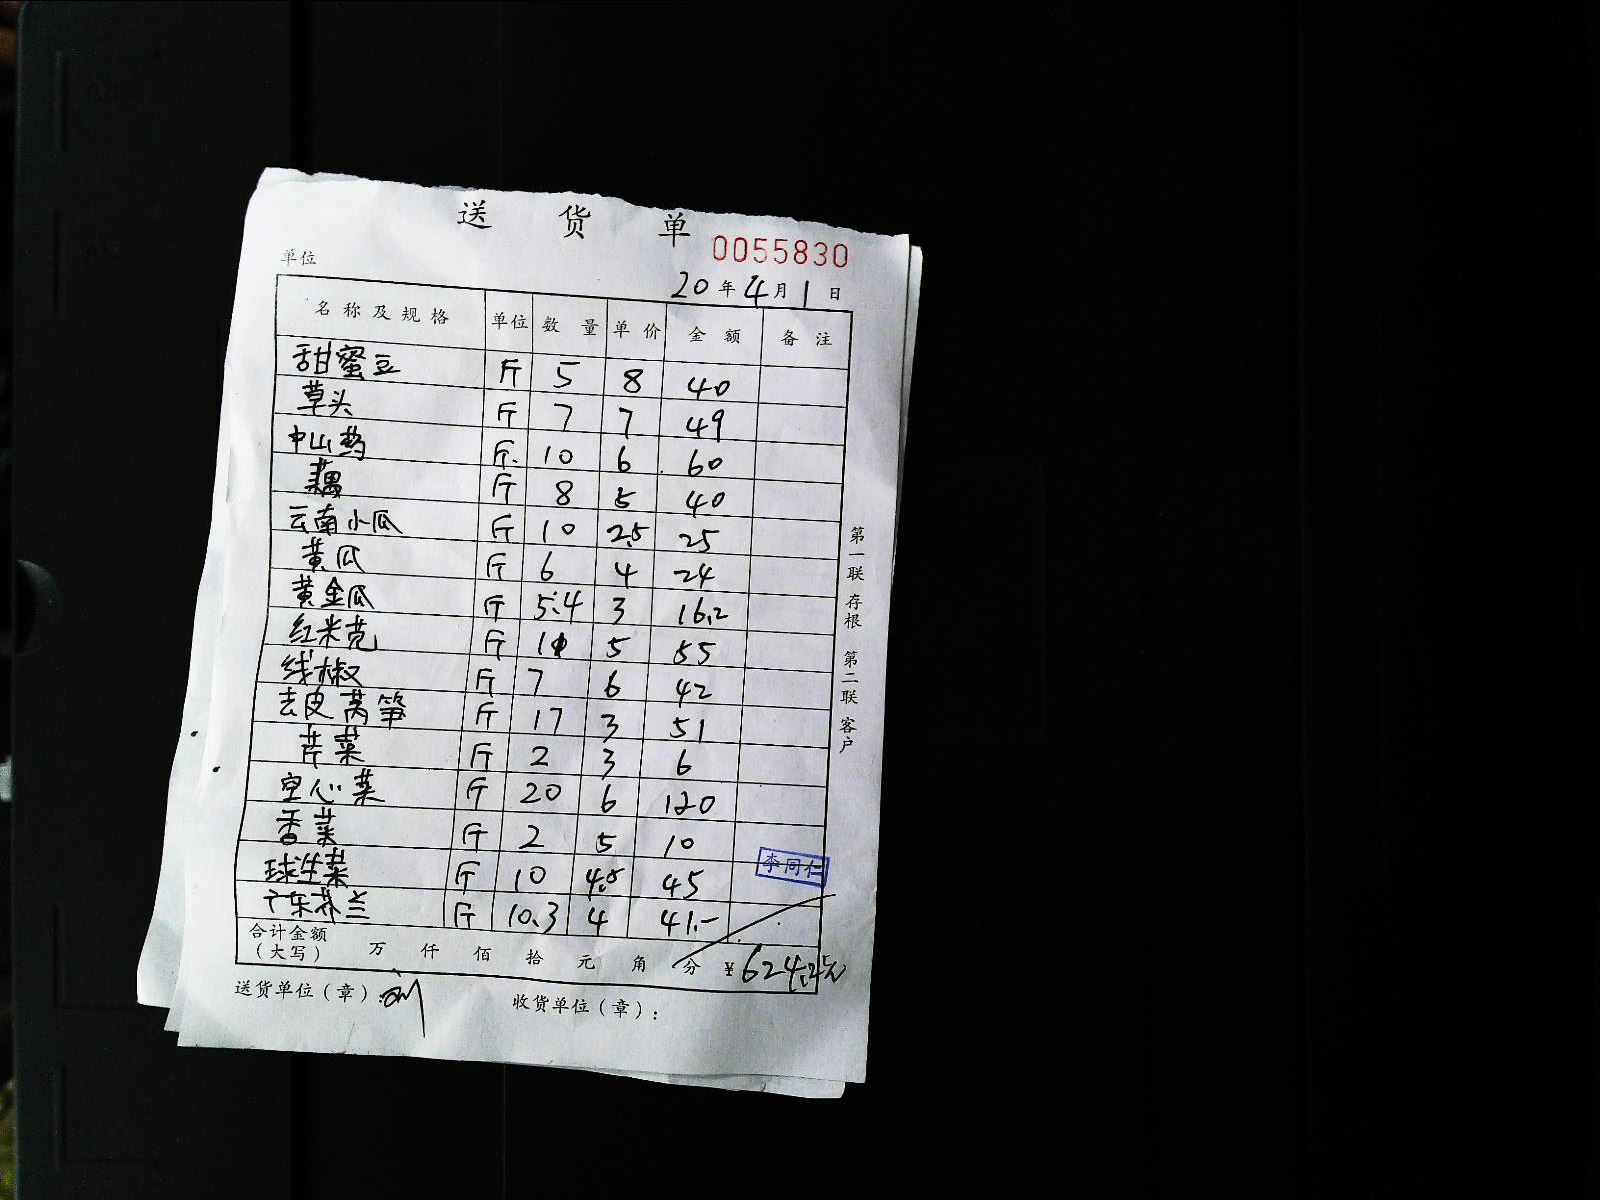 送 货 单
0055830
单位
20 年 4 月 1 日
名称及规格 单位 数量 单价 金额 备注
甜蜜豆 斤 5 8 40
草头 斤 7 7 49
中山药 斤 10 6 60
藕 斤 8 5 40
云南小瓜 斤 10 2.5 25
黄瓜 斤 6 4 24
黄金瓜 斤 5.4 3 16.2
红米苋 斤 11 5 55
线椒 斤 7 6 42
去皮莴笋 斤 17 3 51
芹菜 斤 2 3 6
空心菜 斤 20 6 120
香菜 斤 2 5 10
球生菜 斤 10 4.5 45
广东芥兰 斤 10.3 4 41.-
李同仁
合计金额
（大写） 万 仟 佰 拾 元 角 分 ¥624.2元
送货单位（章）：
收货单位（章）：
第一联 存根 第二联 客户